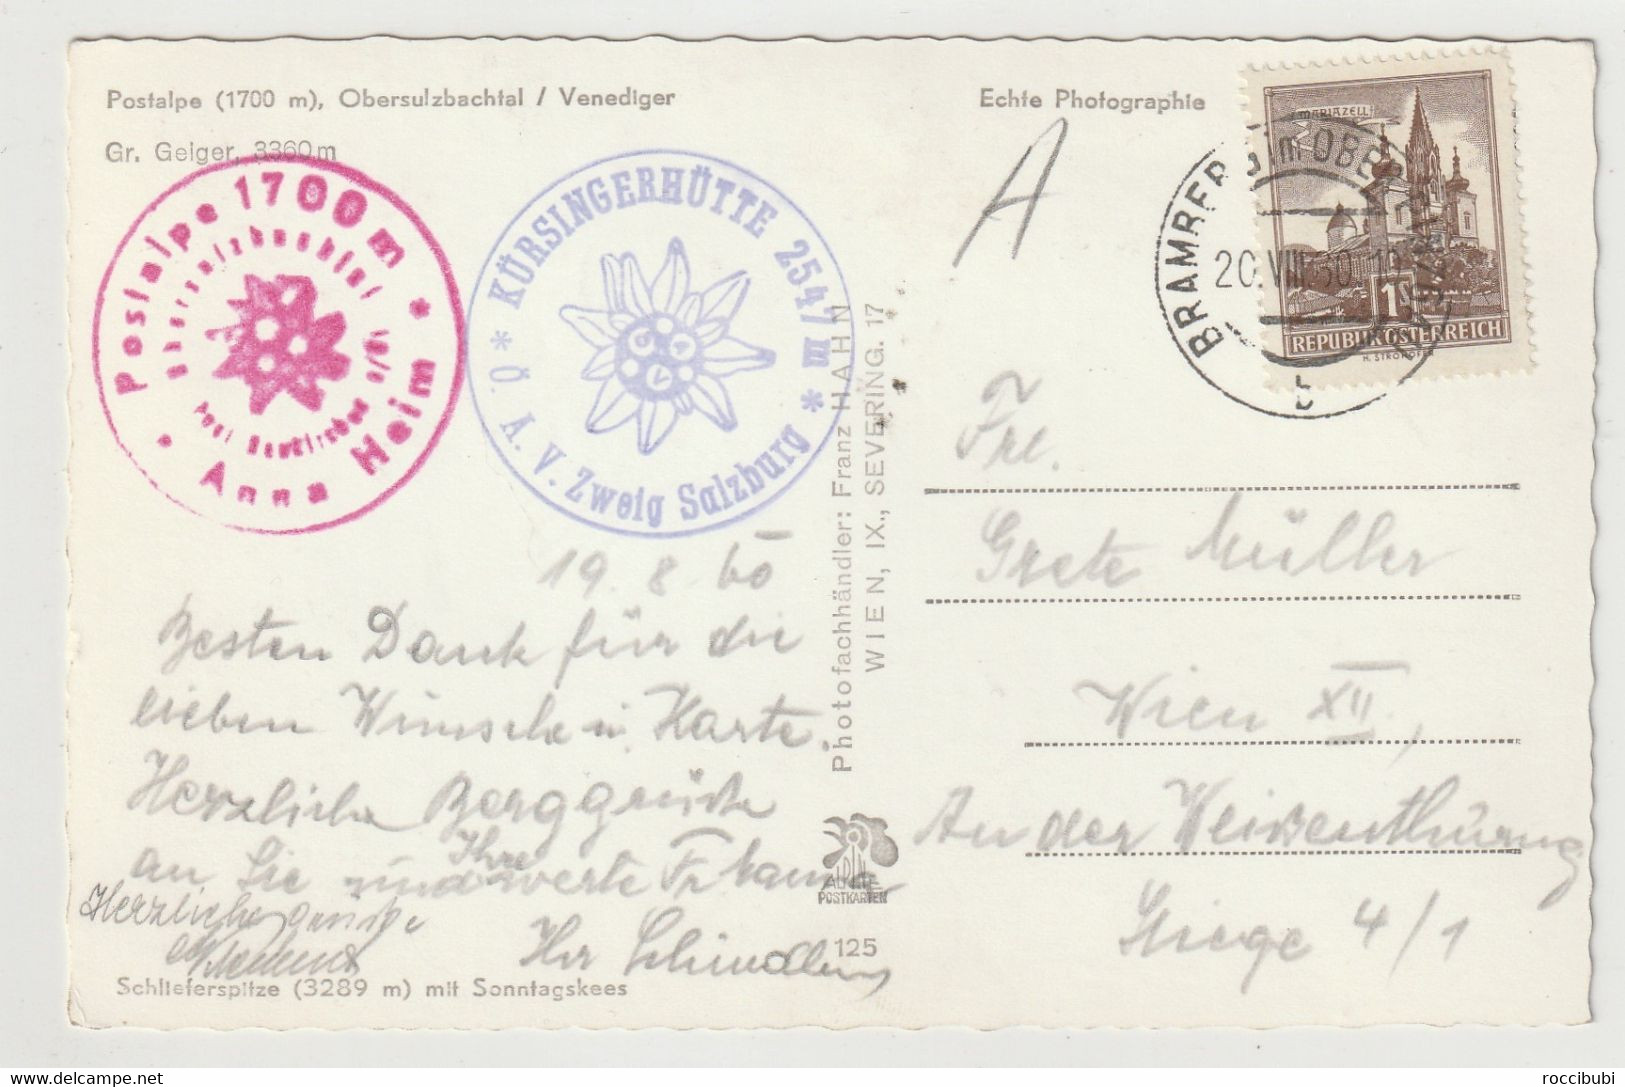 Postalpe (1700 m), Obersulzbachtal / Venediger
Gr. Geiger, 3360 m
Echte Photographie
A
MARIAZELL
1S
REPUBLIK ÖSTERREICH
BRAMBERG im OBERPINZGAU
20.VIII.60
b
Postalpe 1700 m
Obersulzbachtal
Post Neukirchen
* Anna Heim *
* KÜRSINGERHÜTTE 2547 m *
Ö. A. V. Zweig Salzburg
19. 8. 60
Besten Dank für die
lieben Wünsche u. Karte.
Herzliche Berggrüße
an Sie und Ihre werte Fr. Mama
Ihr Schindler
Herzliche Grüße
Schlieferspitze (3289 m) mit Sonntagskees
Photofachhändler: Franz HAHN
WIEN, IX., SEVERING. 17
POSTKARTEN
125
Frl.
Grete Müller
Wien XII.,
An der
Stiege 4/1
roccibubi